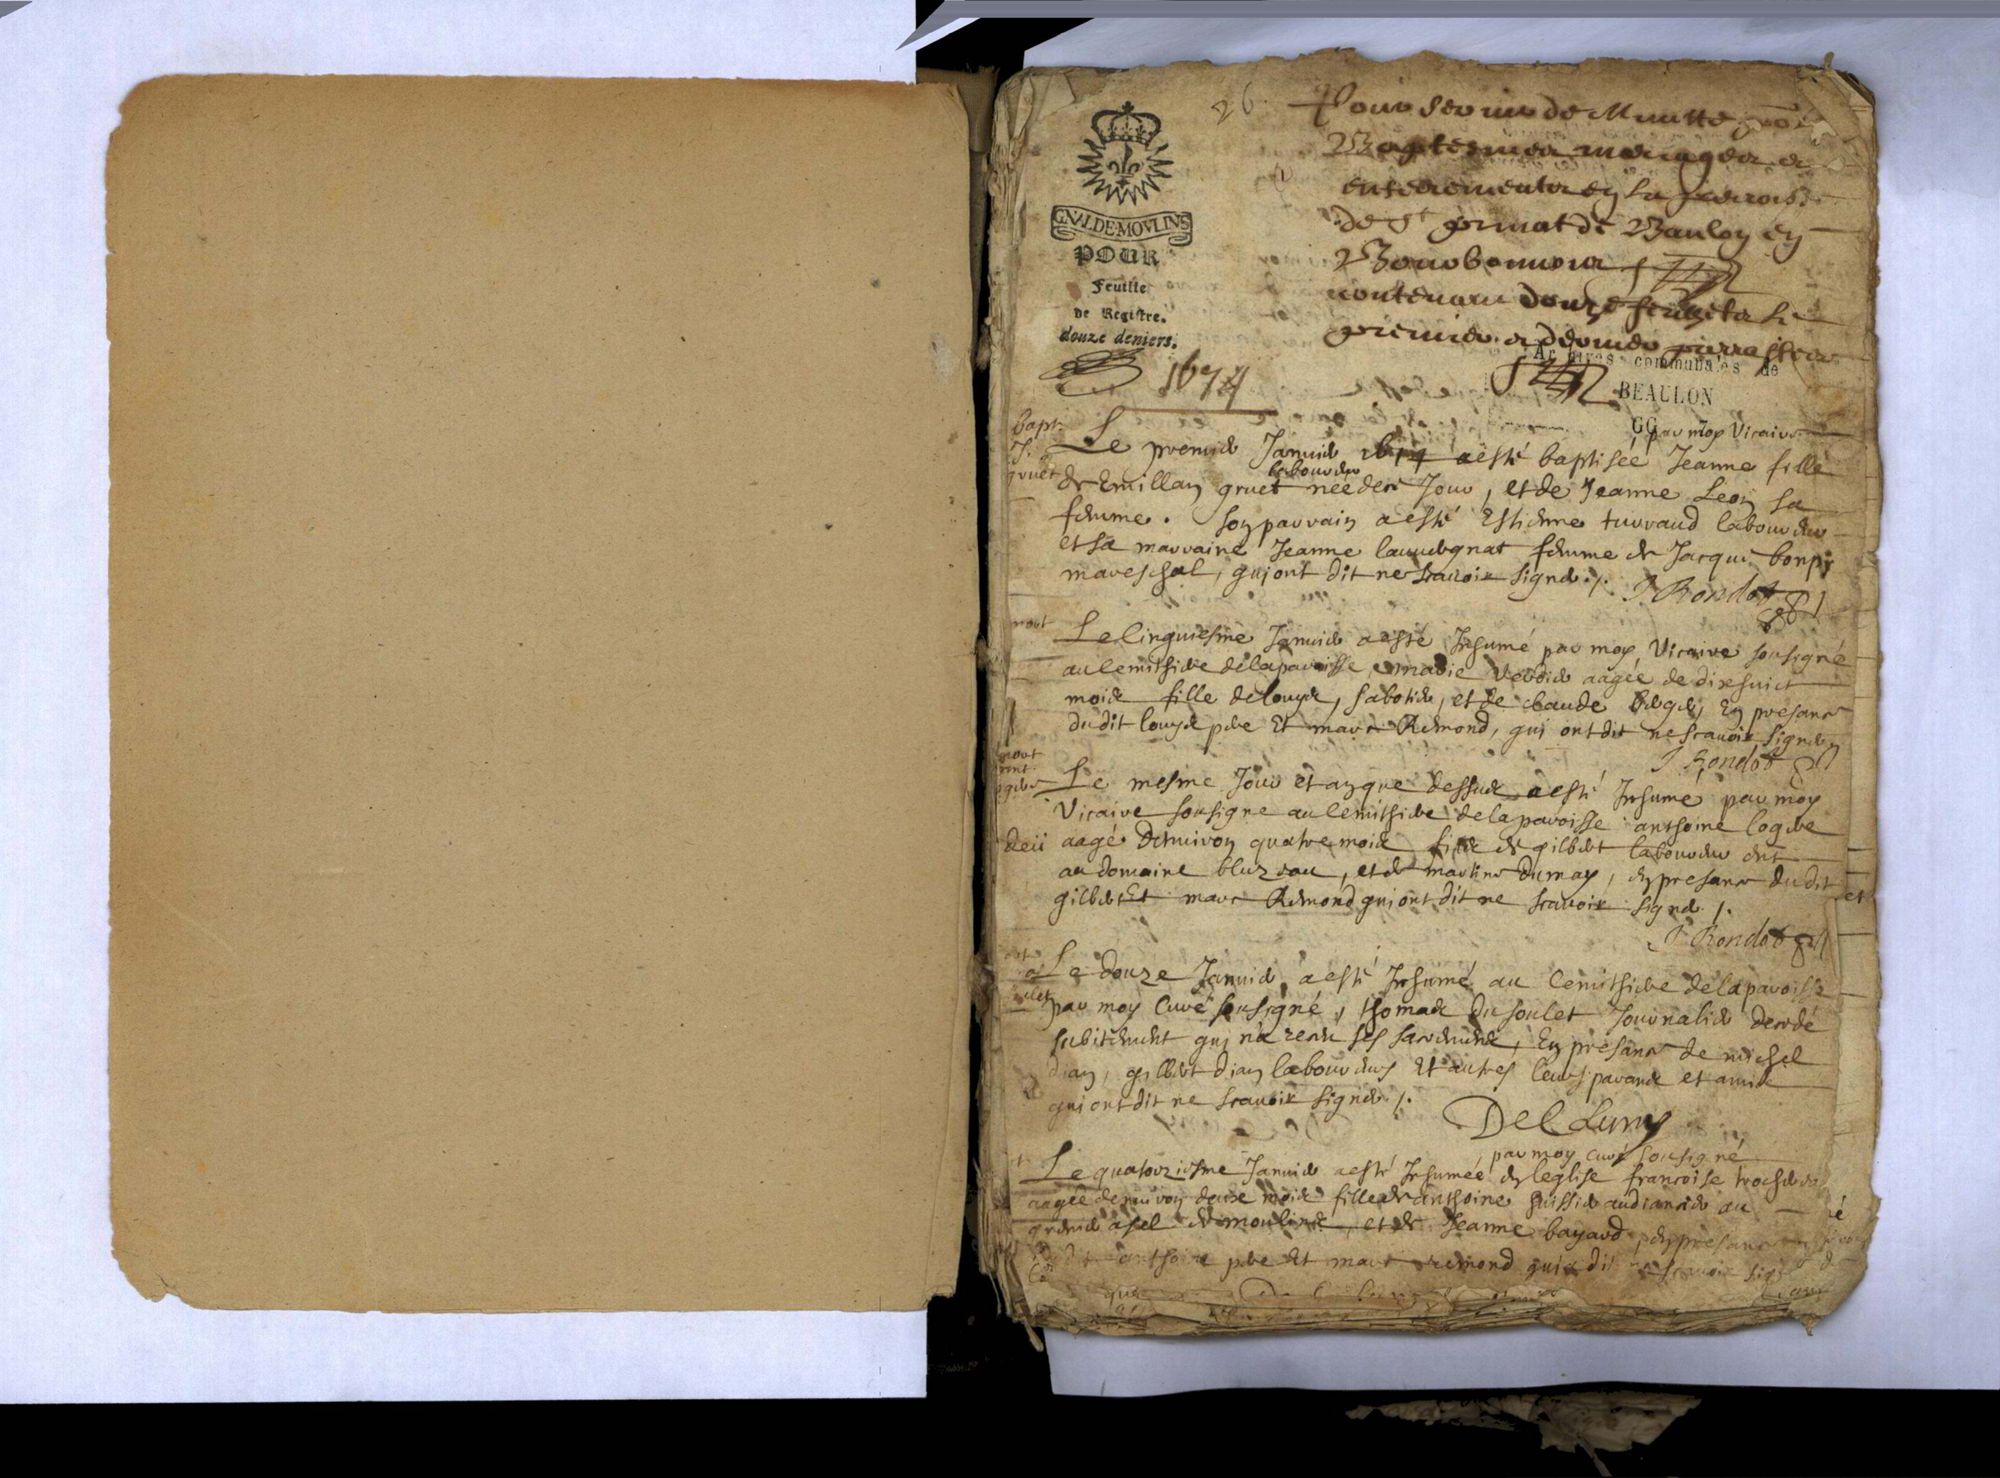 26.
Pour servir de Minutte pour
Baptesmes mariages et
enterrements en la parroisse
de St germat de Baulon en
Bourbonnois
contenant douze feuillets le
premier et dernier
GNAL DE MOVLINS
POUR
Feuille
de Registre.
douze deniers.
1674
Archives communales de
BEAULON
GG
par moy Vicaire
bapt.
J.
gruet
Le premier Janvier 1674 a esté baptisée Jeanne fille
laboureur
de Emillan gruet née de ce Jour, et de Jeanne Leon sa
femme. son parrain a esté Estienne turraud laboureur
et sa marraine Jeanne femme de Jacque bonpi
mareschal, qui ont dit ne scavoir signer ./.
J Rondot
mort
Le Cinquiesme Janvier a esté Inhumé par moy Vicaire sousigné
au Cemithiere de la paroisse marie Verdier aagée de dixhuict
mois fille de Louys, sabotier, et de claude En presance
du dit Louys pere Et marc Remond, qui ont dit ne scavoir signer
J Rondot
mort
Le mesme Jour et an que dessus a esté Inhumé par moy
Vicaire sousigne au Cemithiere de la paroisse anthoine logere
aagé denviron quatre mois fils de gilbert laboureur
au domaine bluzeau, et de martine dumay, en presance du dit
gilbert Et marc Remond qui ont dit ne scavoir signer ./.
J Rondot
Le douze Janvier a esté Inhumé au Cemithiere de la paroisse
par moy Curé sousigné, thomas du soulet Journalier decedé
subitement qui na receu ses sacrements, En presance de michel
dian, gilbert dian laboureurs Et autres leurs parans et amis
qui ont dit ne scavoir signer ./.
par moy curé sousigné
Le quatorziesme Janvier a esté Inhumée en leglise francoise
aagée denviron douze mois fille de anthoine au
grenier a sel de moulins, et de Jeanne bayard, en presance
anthoine pere Et marc remond qui a dit ne scavoir